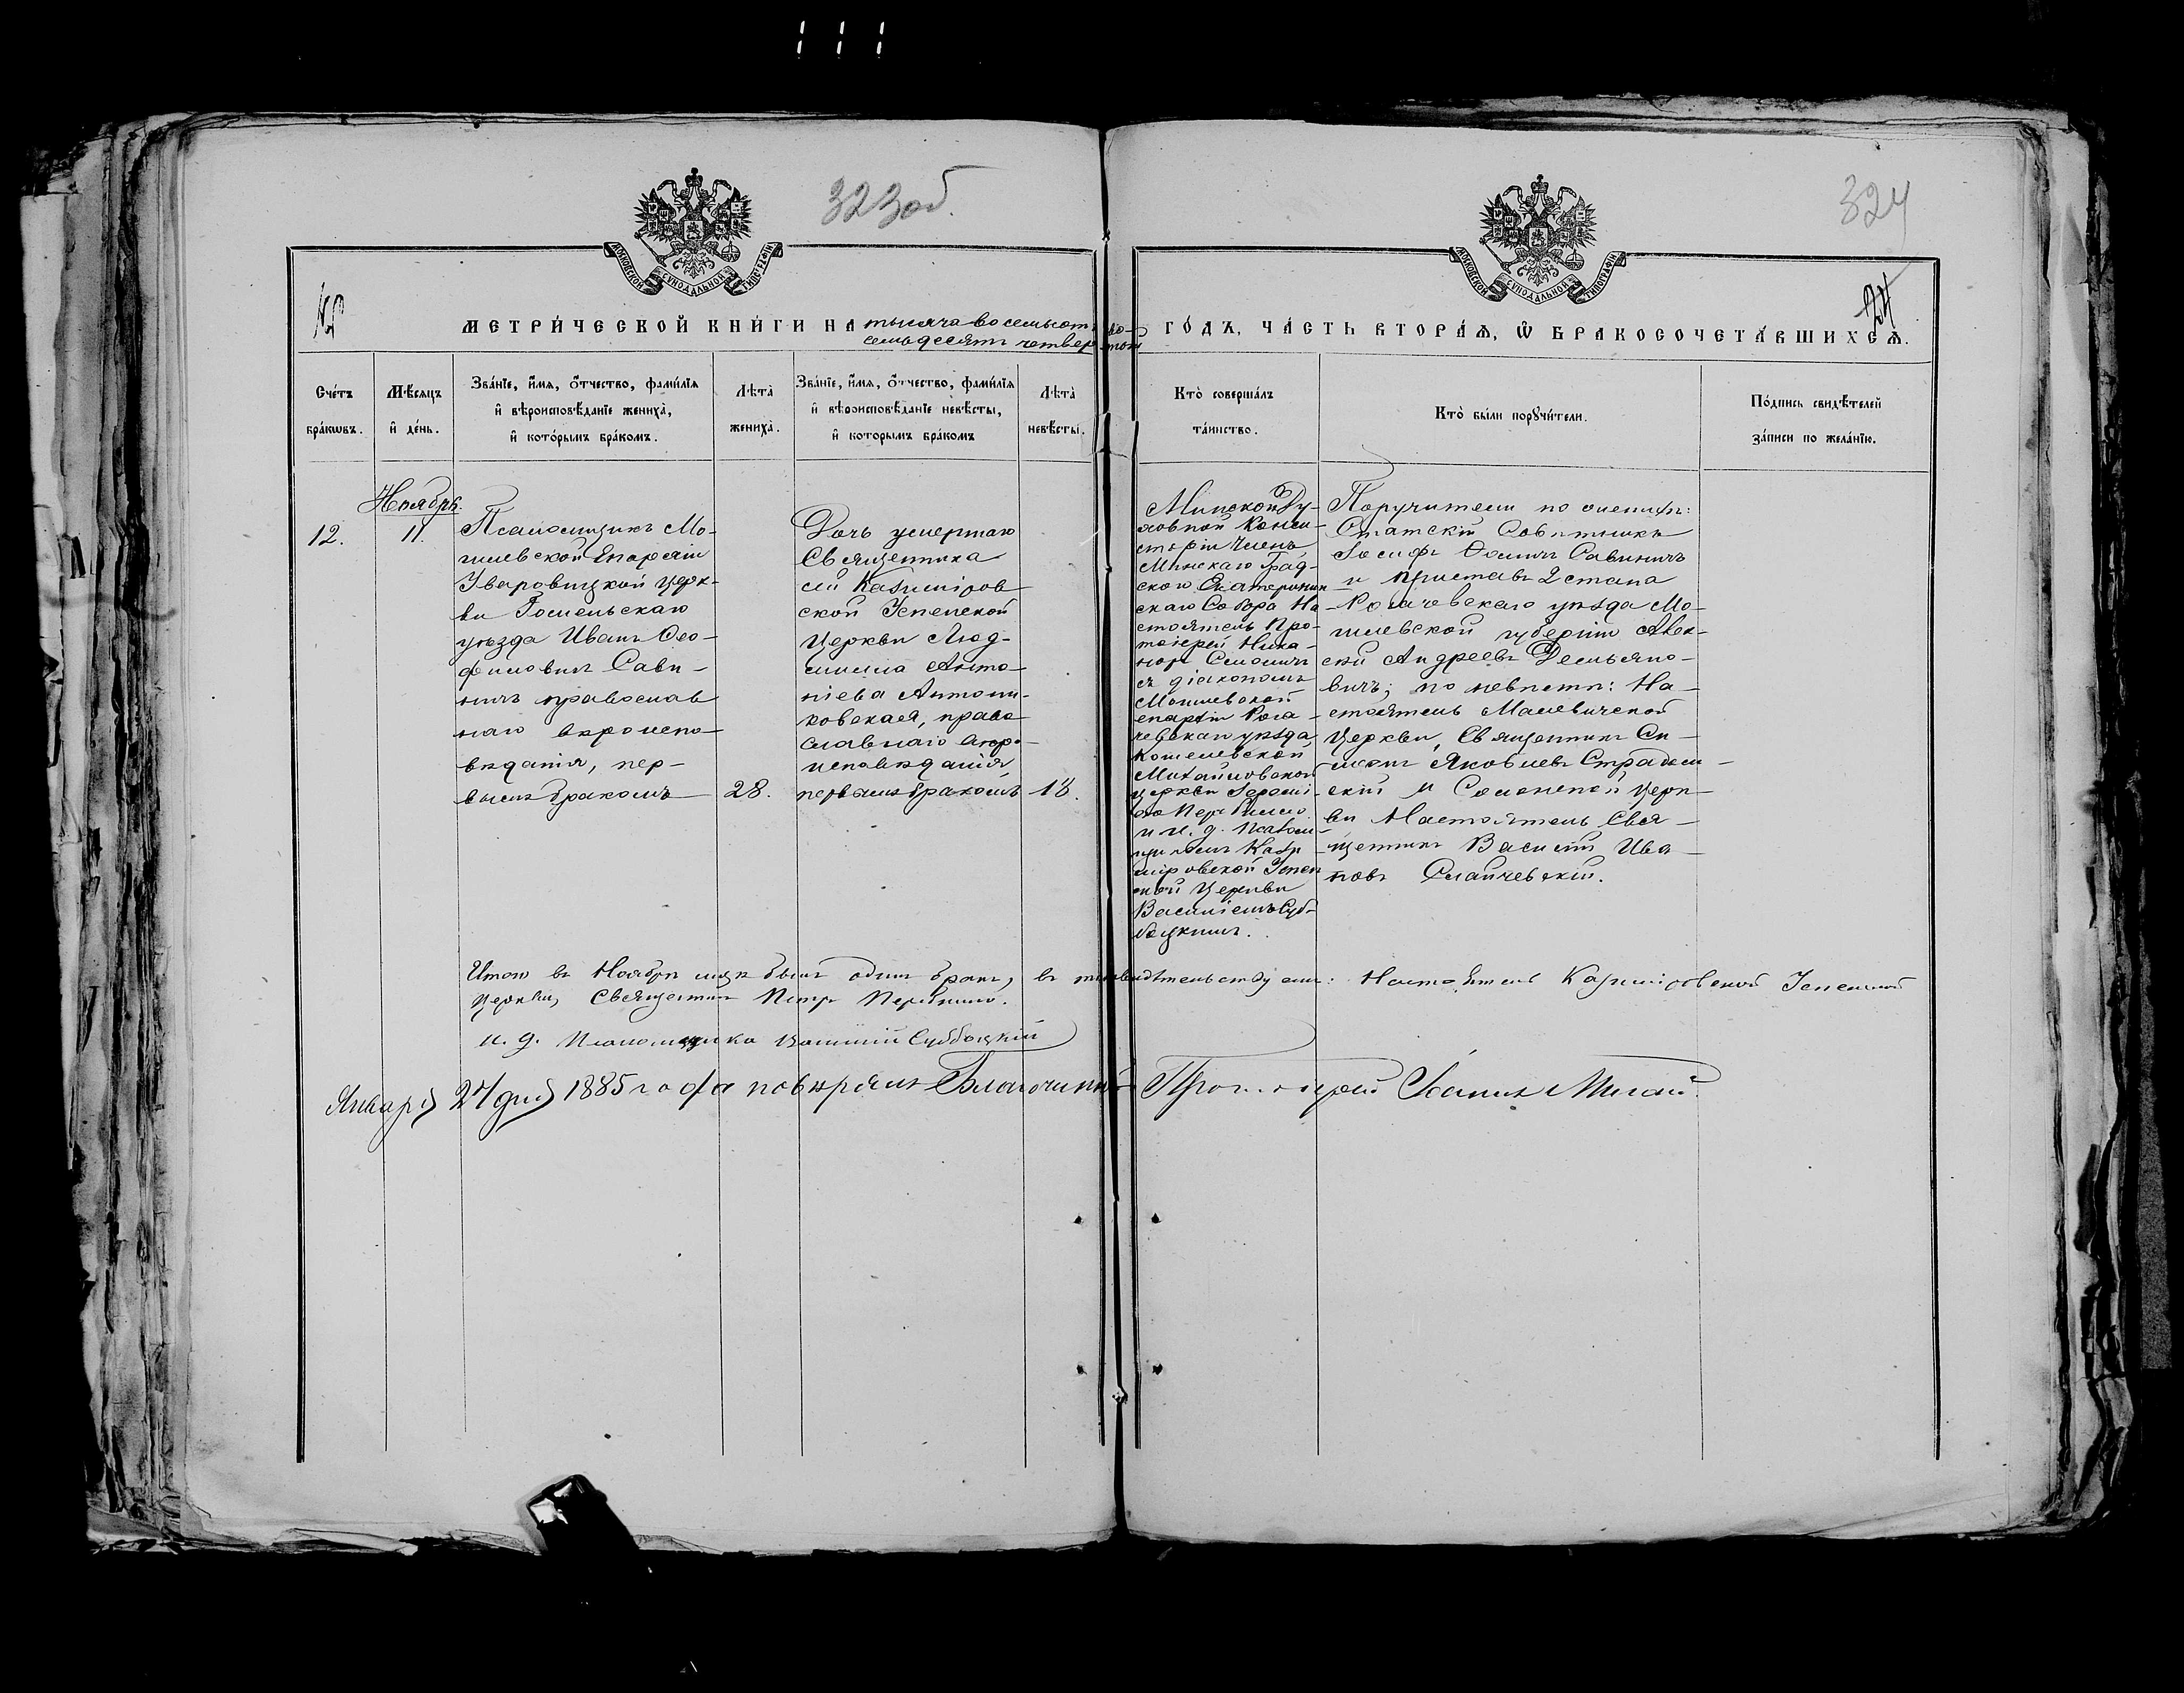 323об.
324
24
МОСКОВСКОЙ СУНОДАЛЬНОЙ ТИПОГРАФІИ
МОСКОВСКОЙ СУНОДАЛЬНОЙ ТИПОГРАФІИ
МЕТРИ́ЧЕСКОЙ КНИ́ГИ НА тысяча восемьсотъ во-
семьдесятъ четвертой
ГО́ДЪ, ЧА́СТЬ ВТОРА́Я, Ѡ БРАКОСОЧЕТА́ВШИХСЯ.
Сче́тъ
бра́кѡвъ.
Мѣ́сяцъ
и де́нь.
Зва́нїе, и́мя, о́тчество, фами́лїя
и вѣроисповѣ́данїе жениха̀,
и кото́рымъ бра́комъ.
Лѣта̀
жениха̀.
Зва́нїе, и́мя, о́тчество, фами́лїя
и вѣроисповѣ́данїе невѣ́сты,
и которымъ бра́комъ
Лѣта̀
невѣ́сты.
Кто̀ соверша́лъ
та́инство.
Кто̀ бы́ли порꙋчи́тели.
По́дпись свидѣ́телей
за́писи по жела́нїю.
Ноябрь.
12.
11.
Псаломщикъ Мо-
гилевской Епархіи
Уваровицкой церк-
ви Гомельскаго
уѣзда Иванъ Ѳео-
филовъ Сави-
ничъ православ
наго вѣроиспо-
вѣданія, пер-
вымъ бракомъ
28.
Дочь умершаго
Священника
сей Казимiров
ской Успенской
Церкви Люд-
милла Анто-
ніева Антони-
ковская, право
славнаго вѣро-
исповѣданія,
первымъ бракомъ
18.
Минской Ду-
ховной Конси-
сторіи Членъ,
Минскаго Град-
скаго Екатеринин
скаго Собора На-
стоятель Про-
тоіерей Ника-
норъ Смоличъ
съ діакономъ
Могилевской
епархіи Рога-
чевскаго уѣзда
Кошелевской
Михайловской
церкви
и и. д. псалом-
щикомъ Кази
міровской Успен
ской Церкви
Василіемъ Суб-
боцкимъ.
Поручители по женихѣ:
Статскій Совѣтникъ
Іосифъ Ѳоминъ Савиничъ
и приставъ 2 стана
Рогачевскаго уѣзда Мо-
гилевской губерніи Алек-
сѣй Андреевъ Демьяно-
вичъ; по невѣстѣ: На-
стоятель Малевичской
Церкви, Священникъ Си-
меонъ Яковлевъ Страдом-
скій и Солонской Церк-
ви Настоятель Свя-
щенникъ Василій Ива-
новъ Смайчевскій.
Итого въ Ноябрѣ мцѣ былъ одинъ бракъ, въ томъ свидѣтельствуемъ: Настоятель Казимiровской Успенской
Церкви, Священникъ Петръ
и. д. Псаломщика Василій Субботскій
Января 24 дня 1885 года повѣрялъ Благочинный Протоіерей Іоаннъ Мигай.